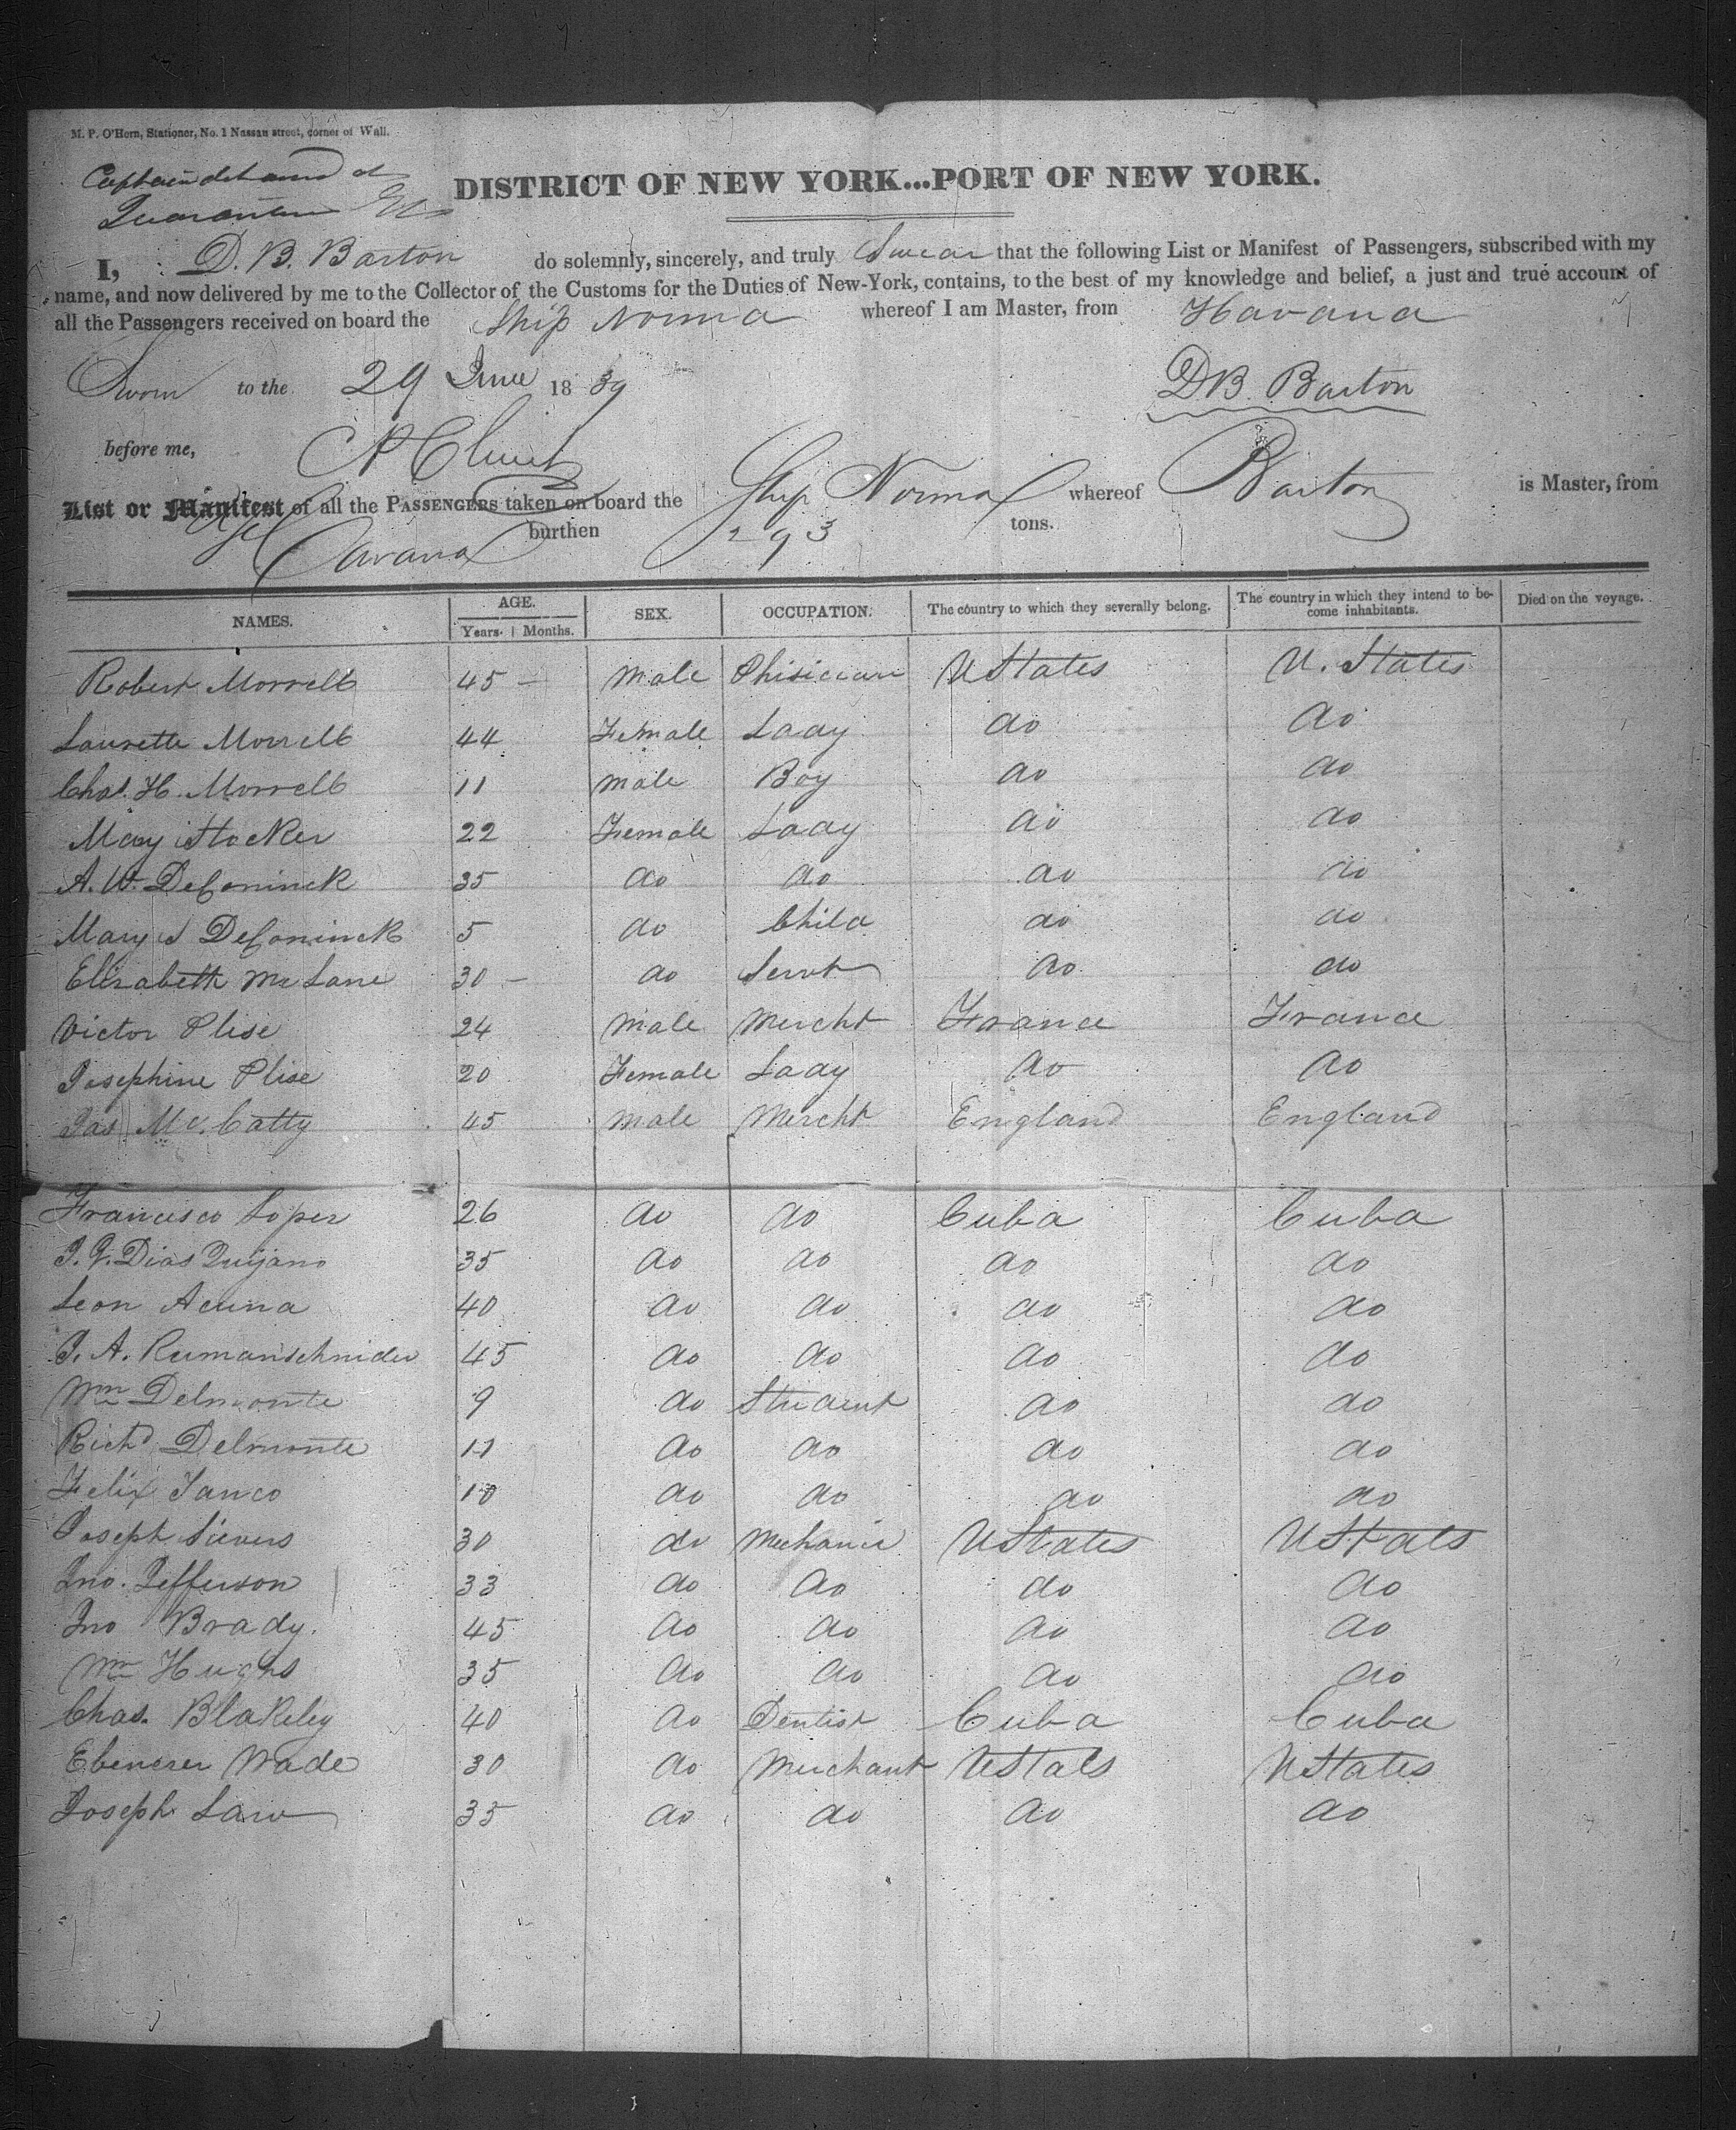 M. P. O'Hern, Stationer, No. 1 Nassau street, corner of Wall.
Captain detained at
Quarantine
DISTRICT OF NEW YORK...PORT OF NEW YORK.
I, D. B. Barton do solemnly, sincerely, and truly Swear that the following List or Manifest of Passengers, subscribed with my
name, and now delivered by me to the Collector of the Customs for the Duties of New-York, contains, to the best of my knowledge and belief, a just and true account of
all the Passengers received on board the Ship Norma whereof I am Master, from Havana
Sworn to the 29 June 1839 DB. Barton
before me,
List or Manifest of all the PASSENGERS taken on board the Ship Norma whereof Barton is Master, from
Havana burthen 293 tons.
NAMES. AGE. SEX. OCCUPATION. The country to which they severally belong. The country in which they intend to be- Died on the voyage.
Years. Months. come inhabitants.
Robert Morrell 45 — Male Phisician UStates U. States
Laurette Morrell 44 Female Lady do do
Chas. H. Morrell 11 male Boy do do
Mary Stocker 22 Female Lady do do
A. W. DeConinck 35 do do do do
Mary S DeConinck 5 do Child do do
Elizabeth McLane 30 — do Servt do do
Victor Plise 24 Male Mercht France France
Josephine Plise 20 Female Lady do do
Jas Mc. Catty 45 Male Mercht England England
Francisco Loper 26 do do Cuba Cuba
J. V. Dias Quijano 35 do do do do
Leon Acuna 40 do do do do
J. A. Rumanschnider 45 do do do do
Wm Delmonte 9 do Student do do
Richd Delmonte 11 do do do do
Felix Tanco 10 do do do do
Joseph Sievers 30 do Mechanic UStates UStats
Jno. Jefferson 33 do do do do
Jno Brady. 45 do do do do
Wm Hughs 35 do do do do
Chas. Blakeley 40 do Dentist Cuba Cuba
Ebenezer Wade 30 do Merchant UStats UStates
Joseph Law 35 do do do do